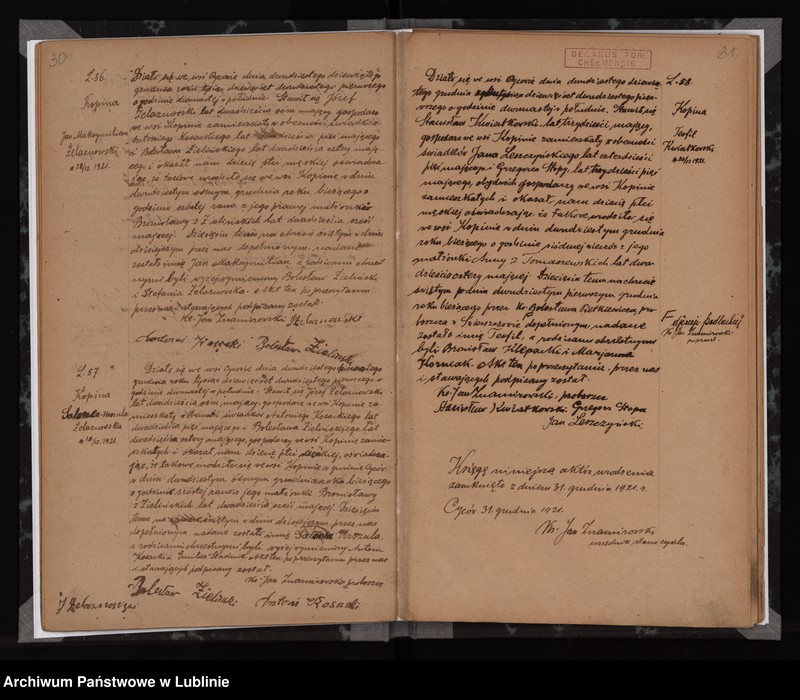 30
L.56.
Kopina
Jan Maksymiljan
Żelaznowski
Działo się we wsi Cycowie dnia dwudziestego dziewiątego
grudnia roku tysiąc dziewięćset dwudziestego pierwszego
o godzinie dwunastej w południe. Stawił się Józef
Żelaznowski lat dwadzieścia osm mający gospodarz
we wsi Kopinie zamieszkały w obecności świadków
Antoniego Kosackiego lat dwadzieścia pięć mającego
i Bolesława Zielińskiego lat dwadzieścia cztery mają-
cego i okazał nam dziecię płci męskiej oświadcza-
jąc, że takowe urodziło się we wsi Kopinie w dniu
dwudziestym osmym grudnia roku bieżącego o
godzinie szóstej rano, z jego prawej małżonki
Bronisławy z Zielińskich lat dwadzieścia sześć
mającej. Dziecięciu temu na chrzcie świętym w dniu
dzisiejszym przez nas dopełnionym, nadane
zostało imię Jan Maksymiljan, a rodzicami chrzest-
nymi byli wyżej wymieniony Bolesław Zieliński
i Stefania Żelaznowska. Akt ten po przeczytaniu
przez nas i stawających podpisany został.
Ks. Jan Znamirowski
Antoni Bolesław Zieliński
L.57.
Kopina
Urszula
Żelaznowska
Działo się we wsi Cycowie dnia dwudziestego dziewiątego
grudnia roku tysiąc dziewięćset dwudziestego pierwszego o
godzinie dwunastej w południe. Stawił się Józef Żelaznowski
lat dwadzieścia osm mający, gospodarz we wsi Kopinie za-
mieszkały w obecności świadków Antoniego Kosackiego lat
dwadzieścia pięć mającego i Bolesława Zielińskiego, lat
dwadzieścia cztery mającego, gospodarzy we wsi Kopinie zamie-
szkałych i okazał nam dziecię płci żeńskiej, oświadcza-
jąc, że takowe urodziło się we wsi Kopinie w gminie Cyców
w dniu dwudziestym osmym grudnia roku bieżącego
o godzinie szóstej rano z jego małżonki Bronisławy
z Zielińskich, lat dwadzieścia sześć mającej. Dziecięciu
temu na chrzcie świętym w dniu dzisiejszym przez nas
dopełnionym, nadane zostało imię Urszula,
a rodzicami chrzestnymi byli wyżej wymieniony Antoni
Kosacki i Emilia. Akt ten po przeczytaniu przez nas
i stawających podpisany został.
Ks. Jan Znamirowski proboszcz
Bolesław Zieliński
Antoni Kosacki
31
DECANUS FOR.
CHEŁMENSIS
L.58.
Kopina
Teofil
Kwiatkowski
Działo się we wsi Cycowie dnia dwudziestego dziewią-
tego grudnia tysiąc dziewięćset dwudziestego pier-
wszego o godzinie dwunastej w południe. Stawił się
Stanisław Kwiatkowski, lat trzydzieści mający,
gospodarz we wsi Kopinie zamieszkały w obecności
świadków Jana Leszczyńskiego lat czterdzieści
pięć mającego i Grzegorza Stopy, lat trzydzieści pięć
mającego, obydwóch gospodarzy we wsi Kopinie
zamieszkałych i okazał, nam dziecię płci
męskiej oświadczając że takowe urodziło się
we wsi Kopinie w dniu dwudziestym grudnia
roku bieżącego o godzinie siódmej wieczór z jego
małżonki Anny z Tomaszewskich, lat dwa-
dzieścia cztery mającej. Dziecięciu temu na chrzcie
świętym w dniu dwudziestym pierwszym grudnia
roku bieżącego przez Ks. Bolesława, pro-
boszcza z dopełnionym, nadane
zostało imię Teofil, a rodzicami chrzestnymi
byli Bronisław Hlepacki i Marjanna
Korniak. Akt ten po przeczytaniu, przez nas
i stawających podpisany został.
Ks. Jan Znamirowski, proboszcz
Stanisław Kwiatkowski Grzegorz Stopa
Jan Leszczyński
Księgę niniejszą aktów urodzenia
zamknięto z dniem 31. grudnia 1921 r.
Cyców 31. grudnia 1921.
Ks. Jan Znamirowski
urzędnik stanu cywiln.
Archiwum Państwowe w Lublinie